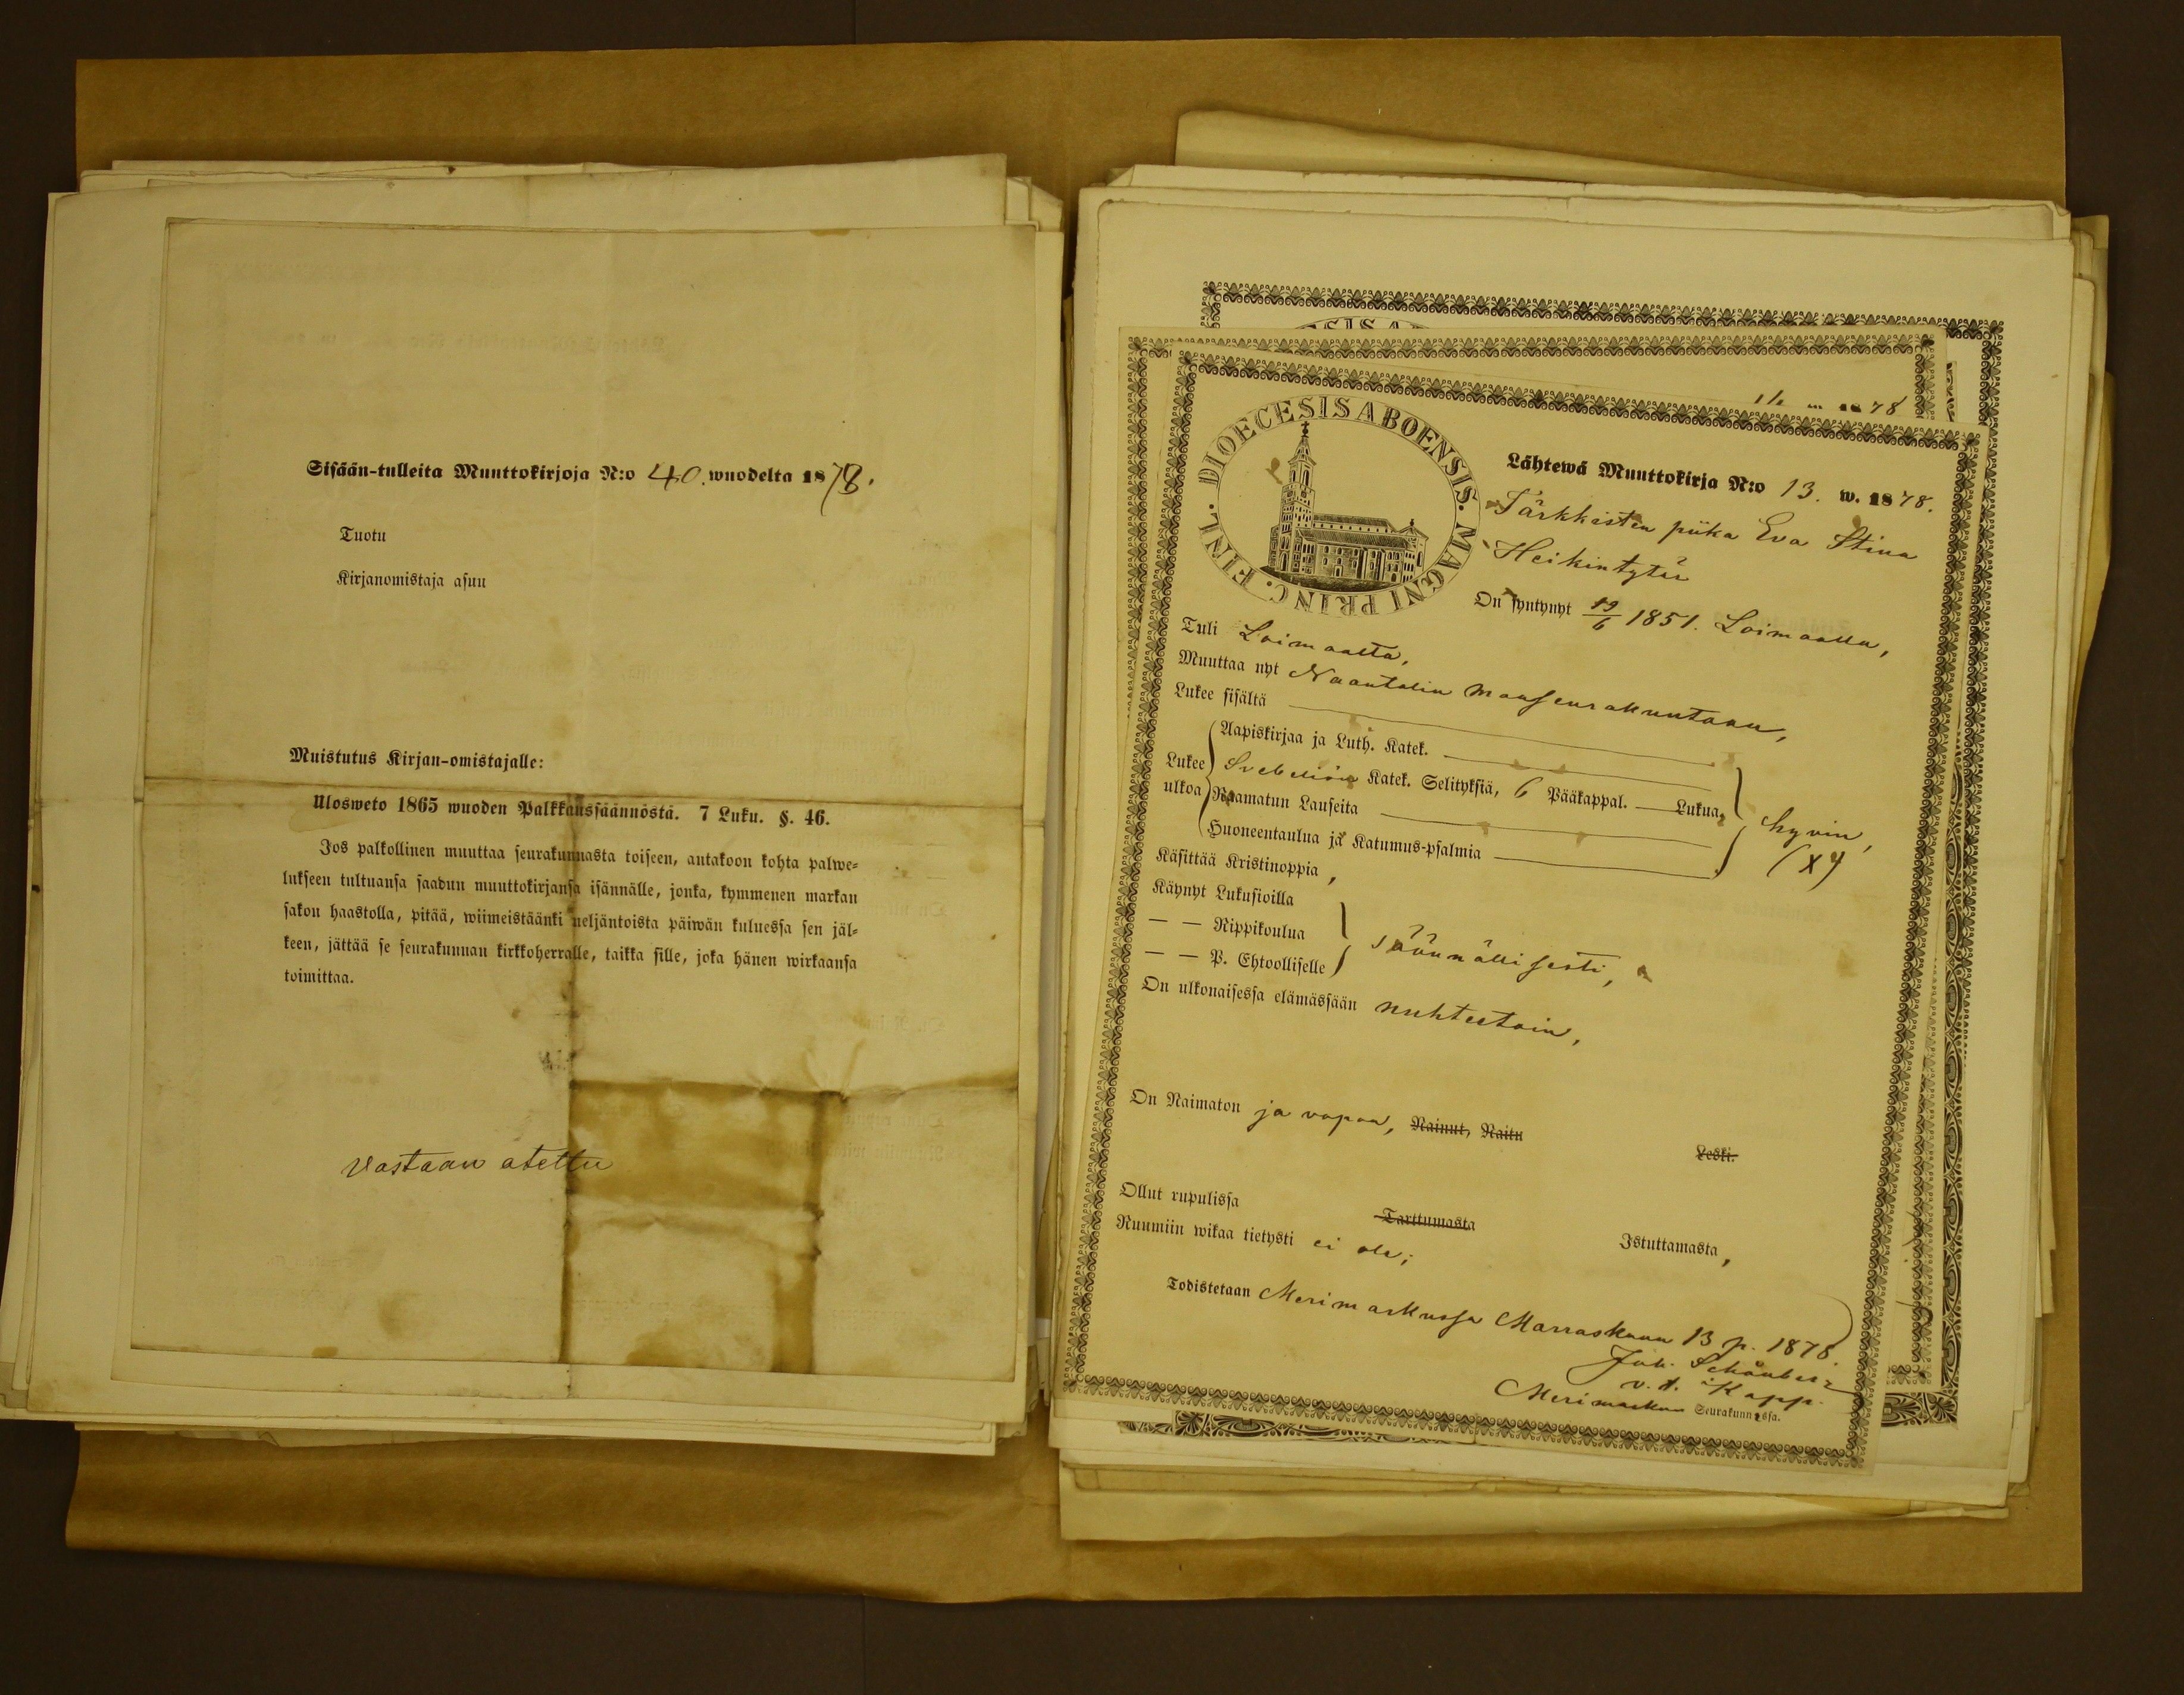 Sisään-tulleita Muuttokirjoja N:o 40. wuodelta 1878.
Tuotu
Kirjanomistaja asuu
Muistutus Kirjan-omistajalle:
Ulosweto 1865 wuoden Palkkaussäännöstä. 7 Luku. §. 46.
Jos palkollinen muuttaa seurakunnasta toiseen, antakoon kohta palwe-
lukseen tultuansa saadun muuttokirjansa isännälle, jonka, kymmenen markan
sakon haastolla, pitää, wiimeistäänki neljäntoista päiwän kuluessa sen jäl-
keen, jättää se seurakunnan kirkkoherralle, taikka sille, joka hänen wirkaansa
toimittaa.
Vastaan otettu
1878
DIOECESIS ABOENSIS. MAGNI PRINC. FINL.
Lähtewä Muuttokirja N:o 13. w. 1878.
Särkkisten piika Eva Stina
Heikintytär
On syntynyt 19/6 1851. Loimaalla,
Tuli Loimaalta,
Muuttaa nyt Naantalin maaseurakuntaan,
Lukee sisältä
Lukee ulkoa
Aapiskirjaa ja Luth. Katek.
Svebeliön Katek. Selityksiä, 6 Pääkappal. — Lukua,
Raamatun Lauseita
Huoneentaulua ja Katumus-psalmia
hyvin,
(X)
Käsittää Kristinoppia,
Käynyt Lukusioilla
— — Rippikoulua
— — P. Ehtoolliselle
säännöllisesti,
On ulkonaisessa elämässään nuhteetoin,
On Naimaton ja vapaa, Nainut, Naitu Leski.
Ollut rupulissa Tarttumasta Istuttamasta,
Ruumiin wikaa tietysti ei ole;
Todistetaan Merimaskussa Marraskuun 13 p. 1878.
Joh. Schönberg
v. t. Kapp.
Merimaskun Seurakunnassa.